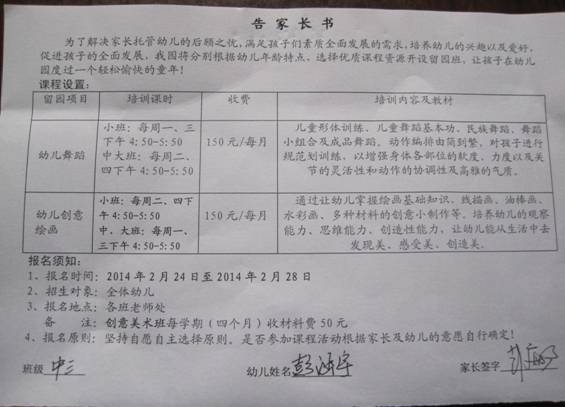 告家长书
为了解决家长托管幼儿的后顾之忧,满足孩子们素质全面发展的需求,培养幼儿的兴趣以及爱好,
促进孩子的全面发展,我园将分别根据幼儿年龄特点,选择优质课程资源开设留园班,让孩子在幼儿
园度过一个轻松愉快的童年!
课程设置:
留园项目 培训课时 收费 培训内容及教材
幼儿舞蹈
小班:每周一、三
下午 4:50-5:50
中大班:每周二、
四下午 4:50-5:50
150 元/每月
儿童形体训练、儿童舞蹈基本功、民族舞蹈、舞蹈
小组合及成品舞蹈。动作编排由简到繁,对孩子进行
规范划训练,以增强身体各部位的软度、力度以及关
节的灵活性和动作的协调性及高雅的气质。
幼儿创意
绘画
小班:每周二、四下
午 4:50-5:50
中、大班:每周一、
三下午 4:50-5:50
150 元/每月
通过让幼儿掌握绘画基础知识、线描画、油棒画、
水彩画、多种材料的创意小制作等,培养幼儿的观察
能力、思维能力、创造性能力,让幼儿能从生活中去
发现美、感受美、创造美。
报名须知:
1、报名时间:2014 年 2 月 24 日至 2014 年 2 月 28 日
2、招生对象:全体幼儿
3、报名地点:各班老师处
备 注:创意美术班每学期(四个月)收材料费 50 元
4、报名原则:坚持自愿自主选择原则,是否参加课程活动根据家长及幼儿的意愿自行确定!
班级 中三 幼儿姓名 彭 宇 家长签字